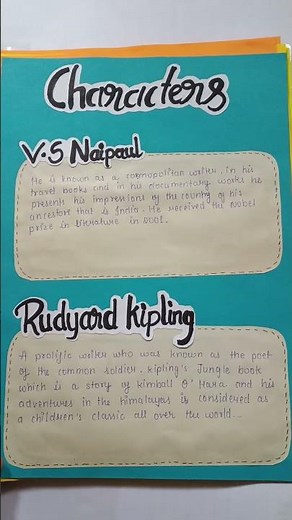 Characters
V.S Naipaul
He is known as a cosmopolitan writer. In his
travel books and in his documentary works he
presents his impressions of the country of his
ancestors that is India. He received the Nobel
prize in literature in 2001.
Rudyard Kipling
A prolific writer who was known as the poet
of the common soldier. Kipling's Jungle book
which is a story of kimball O'Hara and his
adventures in the himalayas is considered as
a children's classic all over the world...